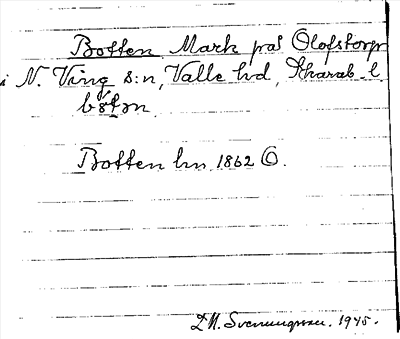 Botten Mark på Olofstorp
i N. Ving s:n, Valle hd, Skarab. l.
bòt̄n
Botten hn 1862 O.
D. H. Svenungsson. 1945.